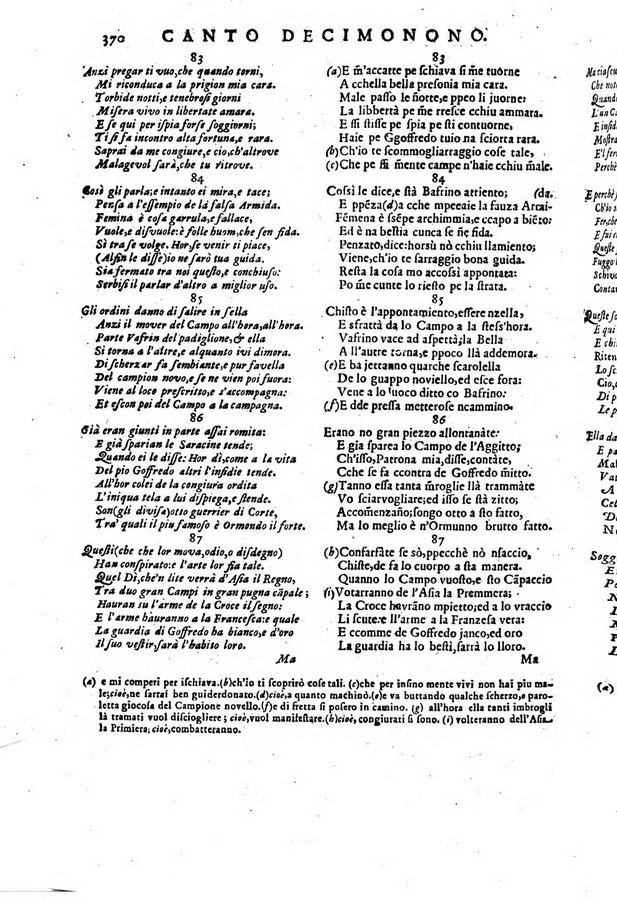 370 CANTO DECIMONONO.
83
Anzi pregar ti vuo, che quando torni,
Mi riconduca a la prigion mia cara.
Torbide notti, e tenebroſi giorni
Miſera vivo in libertate amara.
E ſe qui per iſpia forſe ſoggiorni;
Ti ſi fa incontro alta fortuna, e rara.
Saprai da me congiure, e ciò, ch'altrove
Malagevol ſarà, che tu ritrove.
84
Così gli parla; e intanto ei mira, e tace;
Penſa a l'eſſempio de la falſa Armida.
Femina è coſa garrula, e fallace,
Vuole, e diſvuole: è folle huom, che ſen fida.
Sì tra ſe volge. Hor, ſe venir ti piace,
(Alfin le diſſe) io ne ſarò tua guida.
Sia fermato tra noi queſto, e concluſo:
Serbiſi il parlar d'altro a miglior uſo.
85
Gli ordini danno di ſalire in ſella
Anzi il mover del Campo all'hora, all'hora.
Parte Vafrin del padiglione, & ella
Si torna a l'altre, e alquanto ivi dimora.
Di ſcherzar fa ſembiante, e pur favella
Del campion novo, e ſe ne vien poi fuora:
Viene al loco preſcritto, e s'accompagna:
Et eſcon poi del Campo a la campagna.
86
Già eran giunti in parte aſſai romita:
E già ſparian le Saracine tende;
Quando ei le diſſe: Hor dì, come a la vita
Del pio Goffredo altri l'inſidie tende.
All'hor colei de la congiura ordita
L'iniqua tela a lui diſpiega, e ſtende.
Son (gli diviſa) otto guerrier di Corte,
Tra' quali il piu famoſo è Ormondo il forte.
87
Queſti (che che lor mova, odio, o diſdegno)
Han conſpirato: e l'arte lor fia tale.
Quel Dì, che'n lite verrà d'Aſia il Regno,
Tra duo gran Campi in gran pugna cãpale;
Hauran ſu l'arme de la Croce il ſegno:
E l'arme hauranno a la Franceſca: e quale
La guardia di Goffredo ha bianco, e d'oro
Il ſuo veſtir, ſarà l'habito loro.
Ma
83
(a) E m'accatte pe ſchiava ſi m̃e tuorne
A cchella bella preſonia mia cara.
Male paſſo le ñotte, e ppeo li juorne:
La libbertà pe m̃e rreſce cchiu ammara.
E ſſi ſtiſſe pe ſpia pe ſti contuorne,
Haie pe Ggoffredo tuio na ſciorta rara.
(b) Ch'io te ſcommogliarraggio coſe tale,
(c) Che pe ſſi m̃ente campe n'haie cchiu male.
84
Coſſì le dice, e ſtà Bafrino attiento; (da.
E ppẽza (d) a cche mpeeaie la fauza Arcai-
Fẽmena è ſẽpe archimmia, e ccapo a biẽto:
Ed è na beſtia cunca ſe ñe fida.
Penzato, dice: horsù nò cchiu llamiento;
Viene, ch'io te ſarraggio bona guida.
Reſta la coſa mo accossì appontata:
Po m̃e cunte lo rieſto pe la ſtrata.
85
Chiſto è l'appontamiento, eſſere nzella,
E sfrattà da lo Campo a la ſteſs'hora.
Vafrino vace ad aſpettà, la Bella
A ll'autre torna, e ppoco llà addemora.
(e) E ba jettanno quarche ſcarolella
De lo guappo noviello, ed eſce fora:
Vene a lo luoco ditto co Bafrino:
(f) E dde preſſa metteroſe ncammino.
86
Erano no gran piezzo allontanàte:
E gia ſparea lo Campo de l'Aggitto;
Ch'iſſo, Patrona mia, diſſe, contàte,
Cche ſe fa ccontra de Goffredo mitto.
(g) Tanno eſſa tanta m̃roglie llà trammàte
Vo ſciarvogliare; ed iſſo ſe ſtà zitto;
Accomenzãno; ſongo otto a ſto fatto,
Ma lo meglio è n'Ormunno brutto fatto.
87
(h) Conſarſàte ſe sò, ppecchè nò nſaccio,
Chiſte, de fa lo cuorpo a ſta manera.
Quanno lo Campo vuoſto, e ſto Cãpaccio
(i) Votarranno de l'Aſia la Premmera;
La Croce havrãno mpietto; ed a lo vraccio
Li ſcute: e ll'arme a la Franzeſa vera:
E ccomme de Goffredo janco, ed oro
La guardia ha lo beſtì, ſarrà lo lloro.
Ma
(a) e mi comperi per iſchiava. (b) ch'io ti ſcoprirò coſe tali. (c) che per inſino mente vivi non hai piu male; cioè, ne ſarrai ben guiderdonato. (d) cioè, a quanto machinò. (e) va buttando qualche ſcherzo, e paroletta giocoſa del Campione novello. (f) e di fretta ſi poſero in camino. (g) all'hora ella tanti imbrogli là tramati vuol diſciogliere; cioè, vuol manifeſtare. (h) cioè, congiurati ſi ſono. (i) volteranno dell'Aſia la Primiera; cioè, combatteranno.